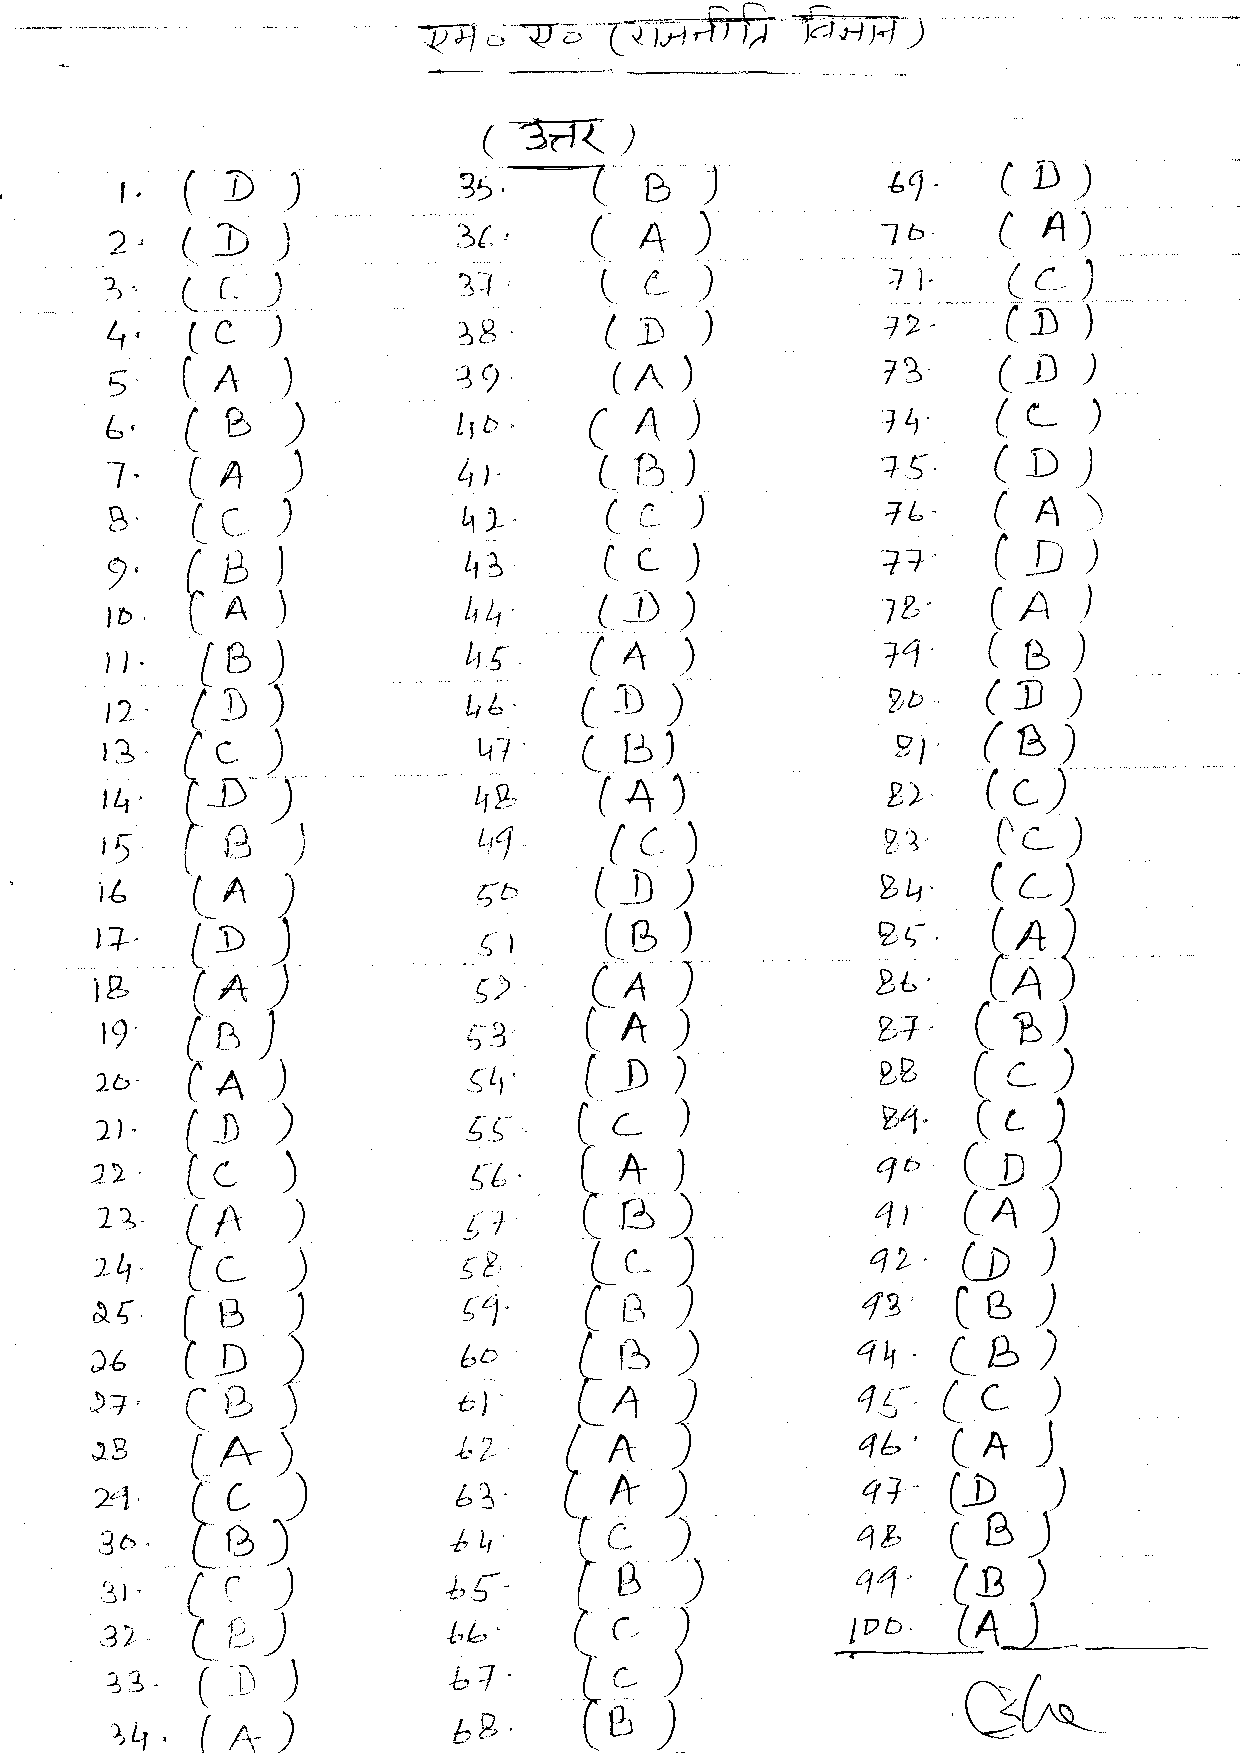 एम० ए० (राजनीति विज्ञान)
(उत्तर)
1. (D)
2. (D)
3. (C)
4. (C)
5. (A)
6. (B)
7. (A)
8. (C)
9. (B)
10. (A)
11. (B)
12. (D)
13. (C)
14. (D)
15 (B)
16 (A)
17. (D)
18 (A)
19. (B)
20. (A)
21. (D)
22. (C)
23. (A)
24. (C)
25. (B)
26 (D)
27. (B)
28 (A)
29. (C)
30. (B)
31. (C)
32. (B)
33. (D)
34. (A)
35. (B)
36. (A)
37. (C)
38. (D)
39. (A)
40. (A)
41. (B)
42. (C)
43 (C)
44. (D)
45. (A)
46. (D)
47. (B)
48 (A)
49. (C)
50 (D)
51 (B)
52 (A)
53. (A)
54. (D)
55. (C)
56. (A)
57. (B)
58. (C)
59. (B)
60. (B)
61. (A)
62. (A)
63. (A)
64. (C)
65. (B)
66. (C)
67. (C)
68. (B)
69. (D)
70. (A)
71. (C)
72. (D)
73. (D)
74. (C)
75. (D)
76. (A)
77. (D)
78. (A)
79. (B)
80. (D)
81. (B)
82. (C)
83. (C)
84. (C)
85. (A)
86. (A)
87. (B)
88 (C)
89. (C)
90. (D)
91. (A)
92. (D)
93. (B)
94. (B)
95. (C)
96. (A)
97. (D)
98 (B)
99. (B)
100. (A)